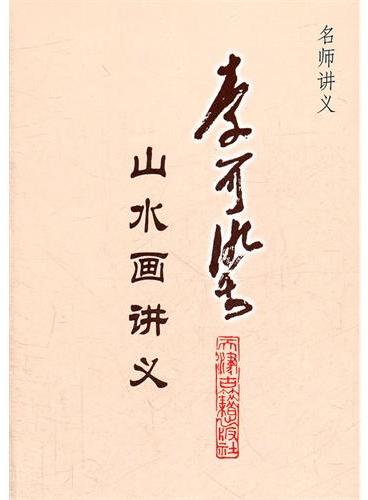 名师讲义
李可染
天津古籍出版社
山水画讲义